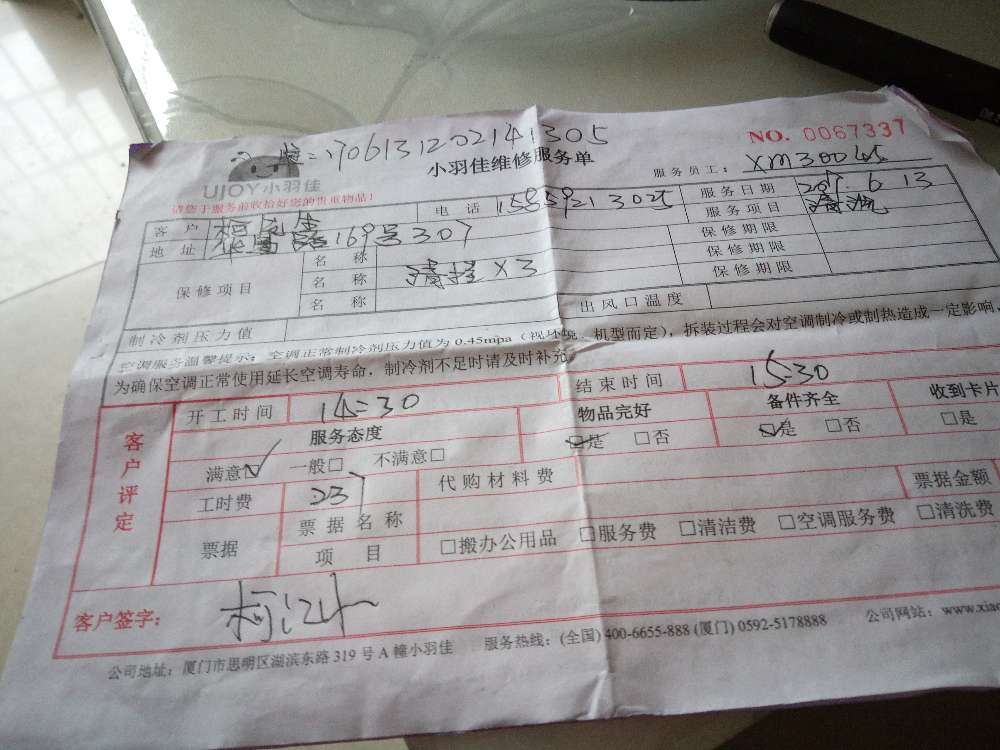 1706131202141305
NO. 0067337
UJOY小羽佳
小羽佳维修服务单
服务员工: XM30045
请您于服务前收拾好您的贵重物品!
客户 电话 服务日期 2017.6.13
地址 169号307 服务项目 清洗
保修项目 名称 保修期限
名称 清洗×3 保修期限
名称 保修期限
制冷剂压力值 出风口温度
空调服务温馨提示: 空调正常制冷剂压力值为0.45mpa(视环境、机型而定),拆装过程会对空调制冷或制热造成一定影响,
为确保空调正常使用延长空调寿命,制冷剂不足时请及时补充
客户评定
开工时间 14:30 结束时间 15:30
服务态度 物品完好 备件齐全 收到卡片
满意☑ 一般□ 不满意□ ☑是 □否 ☑是 □否 □是
工时费 代购材料费
票据 票据名称 票据金额
项目 □搬办公用品 □服务费 □清洁费 □空调服务费 □清洗费
客户签字:
公司地址: 厦门市思明区湖滨东路319号A幢小羽佳 服务热线: (全国) 400-6655-888 (厦门) 0592-5178888 公司网站: www.xiao